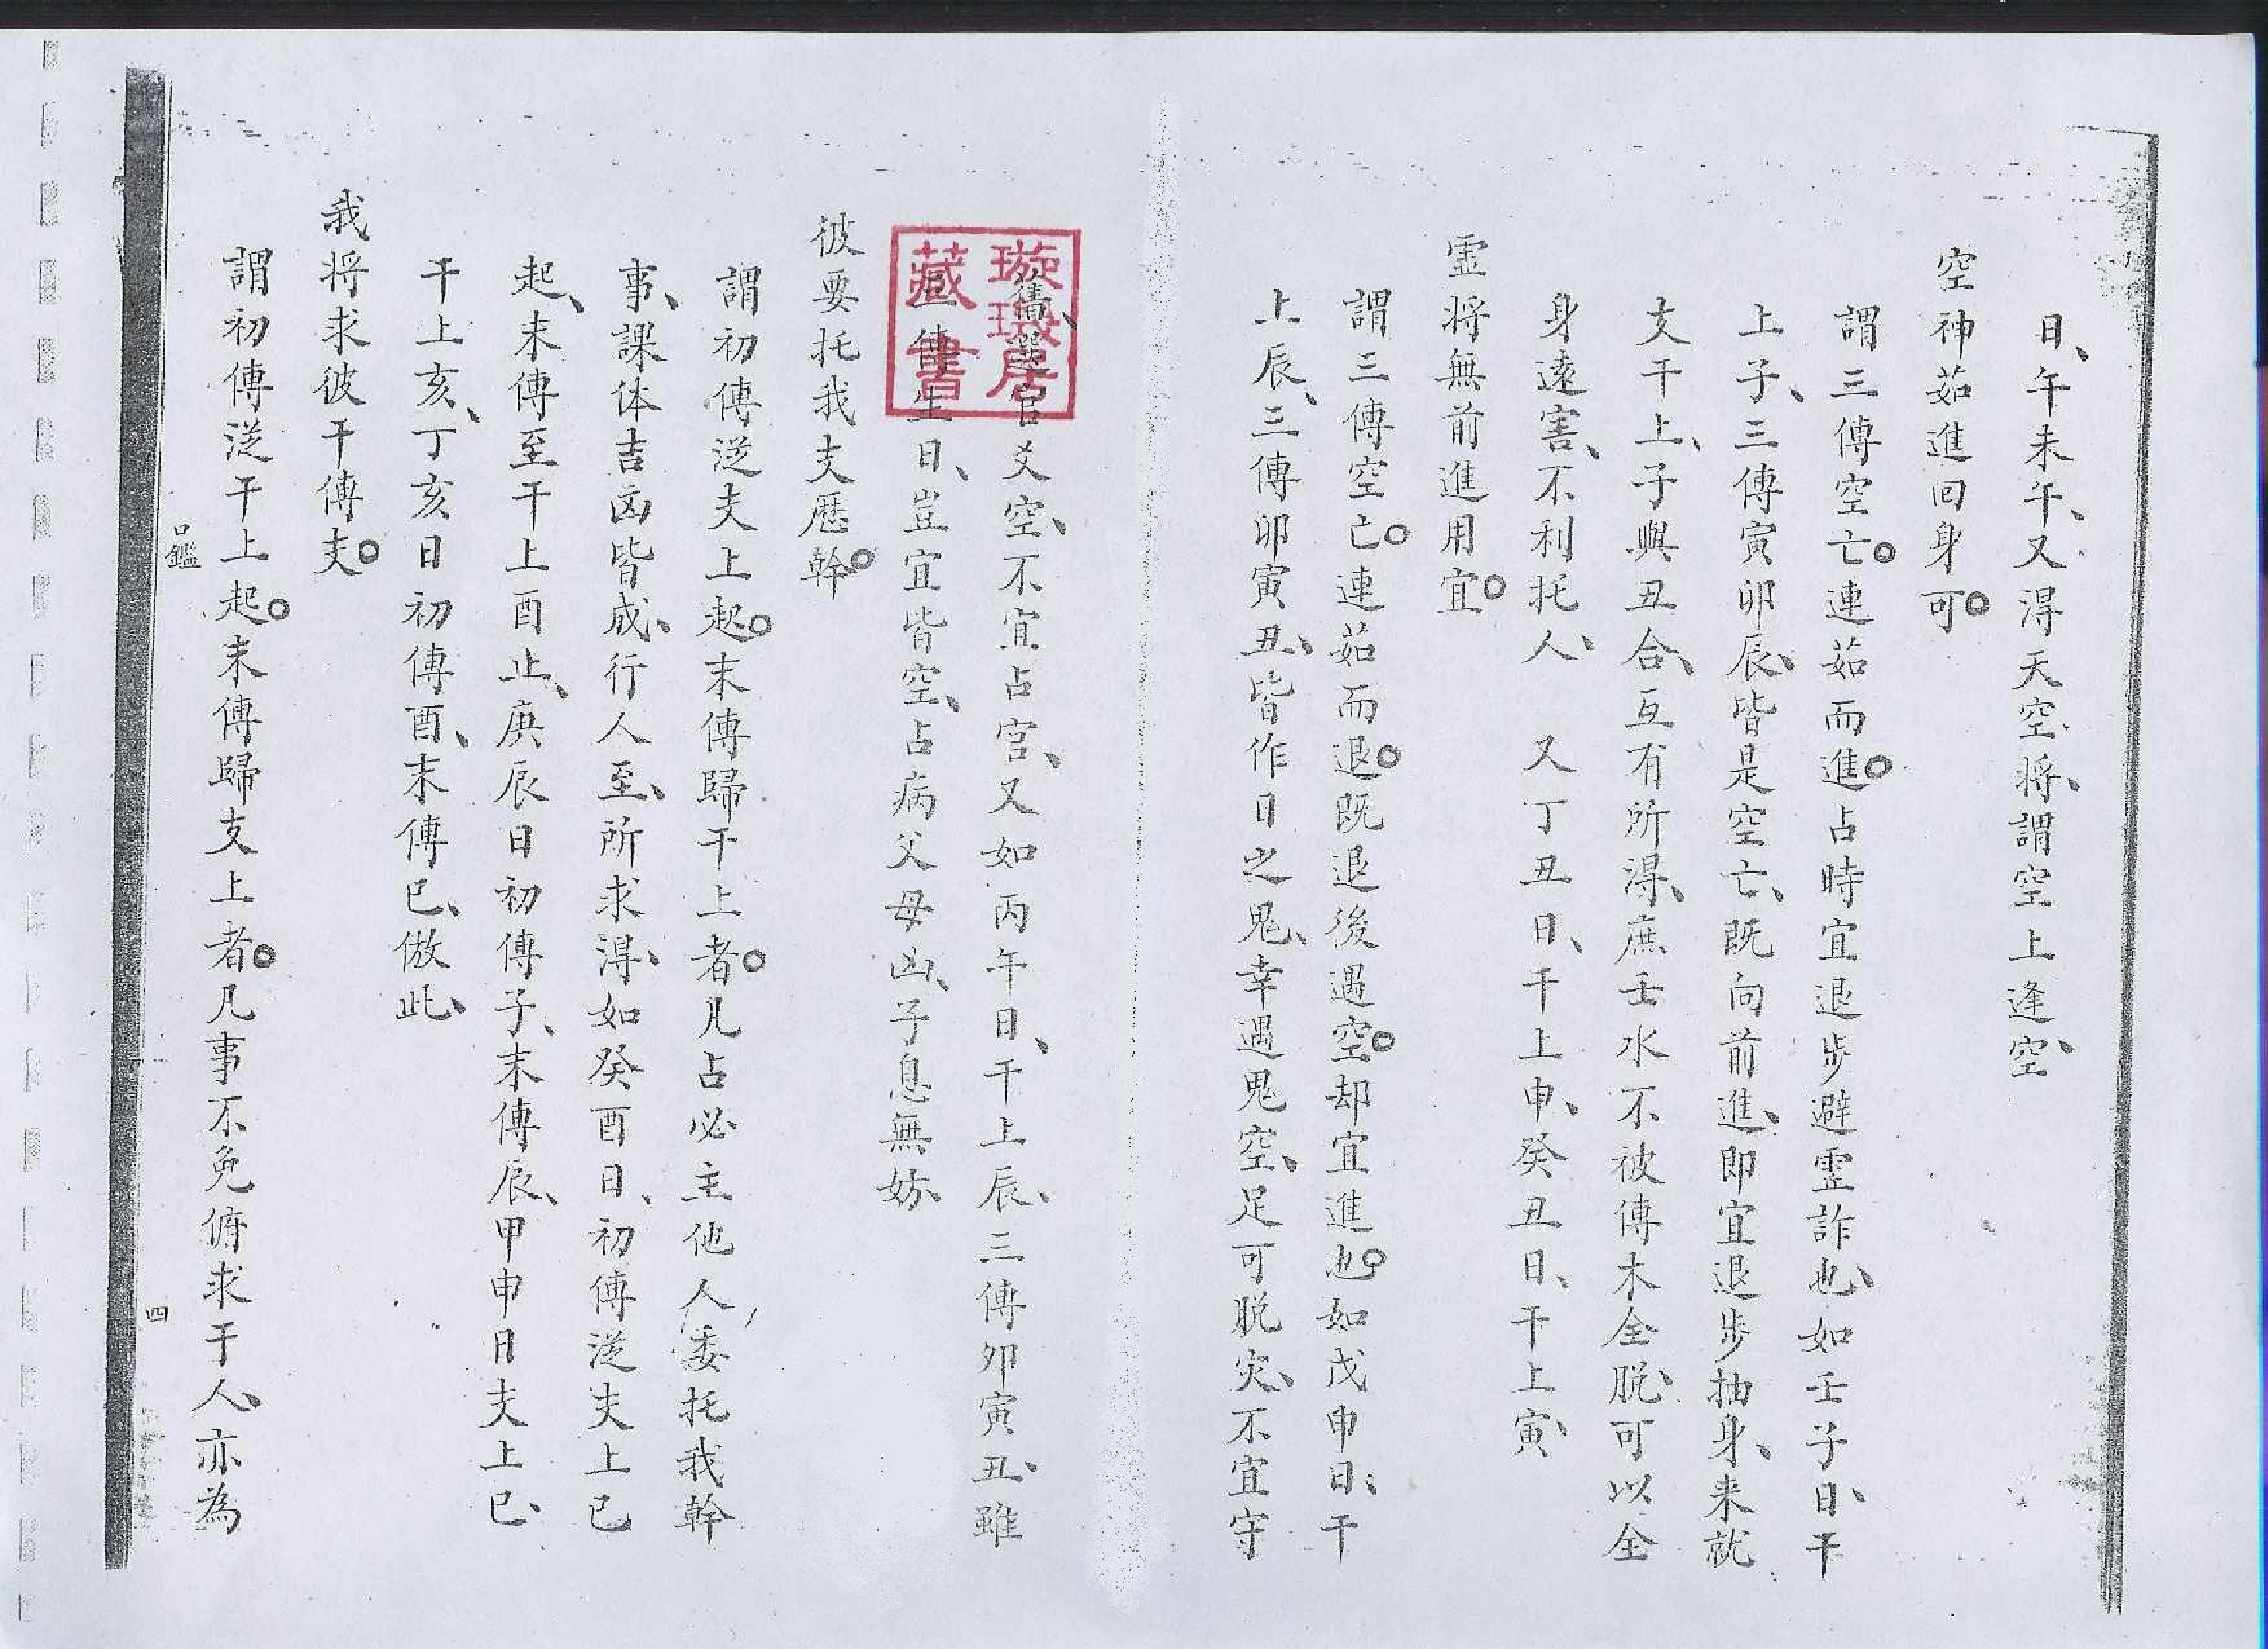 日、午未午、又淂天空将、謂空上逢空、
空神茹進回身可。
謂三傳空亡。連茹而進。占時宜退步避虛詐也、如壬子日、干
上子、三傳寅卯辰、皆是空亡、既向前進、即宜退步抽身、来就
支干上、子與丑合、互有所淂、庶壬水不被傳木全脱、可以全
身遠害、不利托人、 又丁丑日、干上申、癸丑日、干上寅、
虛将無前進用宜。
謂三傳空亡。連茹而退。既退後遇空。却宜進也。如戊申日、干
上辰、三傳卯寅丑、皆作日之鬼、幸遇鬼空、足可脱灾、不宜守
舊、選官爻空、不宜占官、又如丙午日、干上辰、三傳卯寅丑、雖
曰傳生日、豈宜皆空、占病父母凶、子息無妨、
彼要托我支歷幹。
謂初傳從支上起。末傳歸干上者。凡占必主他人委托我幹
事、課体吉凶皆成、行人至、所求淂、如癸酉日、初傳從支上巳
起、末傳至干上酉止、庚辰日初傳子、末傳辰、甲申日支上巳、
干上亥、丁亥日初傳酉、末傳巳、倣此、
我将求彼干傳支。
謂初傳從干上起。末傳歸支上者。凡事不免俯求于人、亦為
口鑑
四
璇璣居
藏書